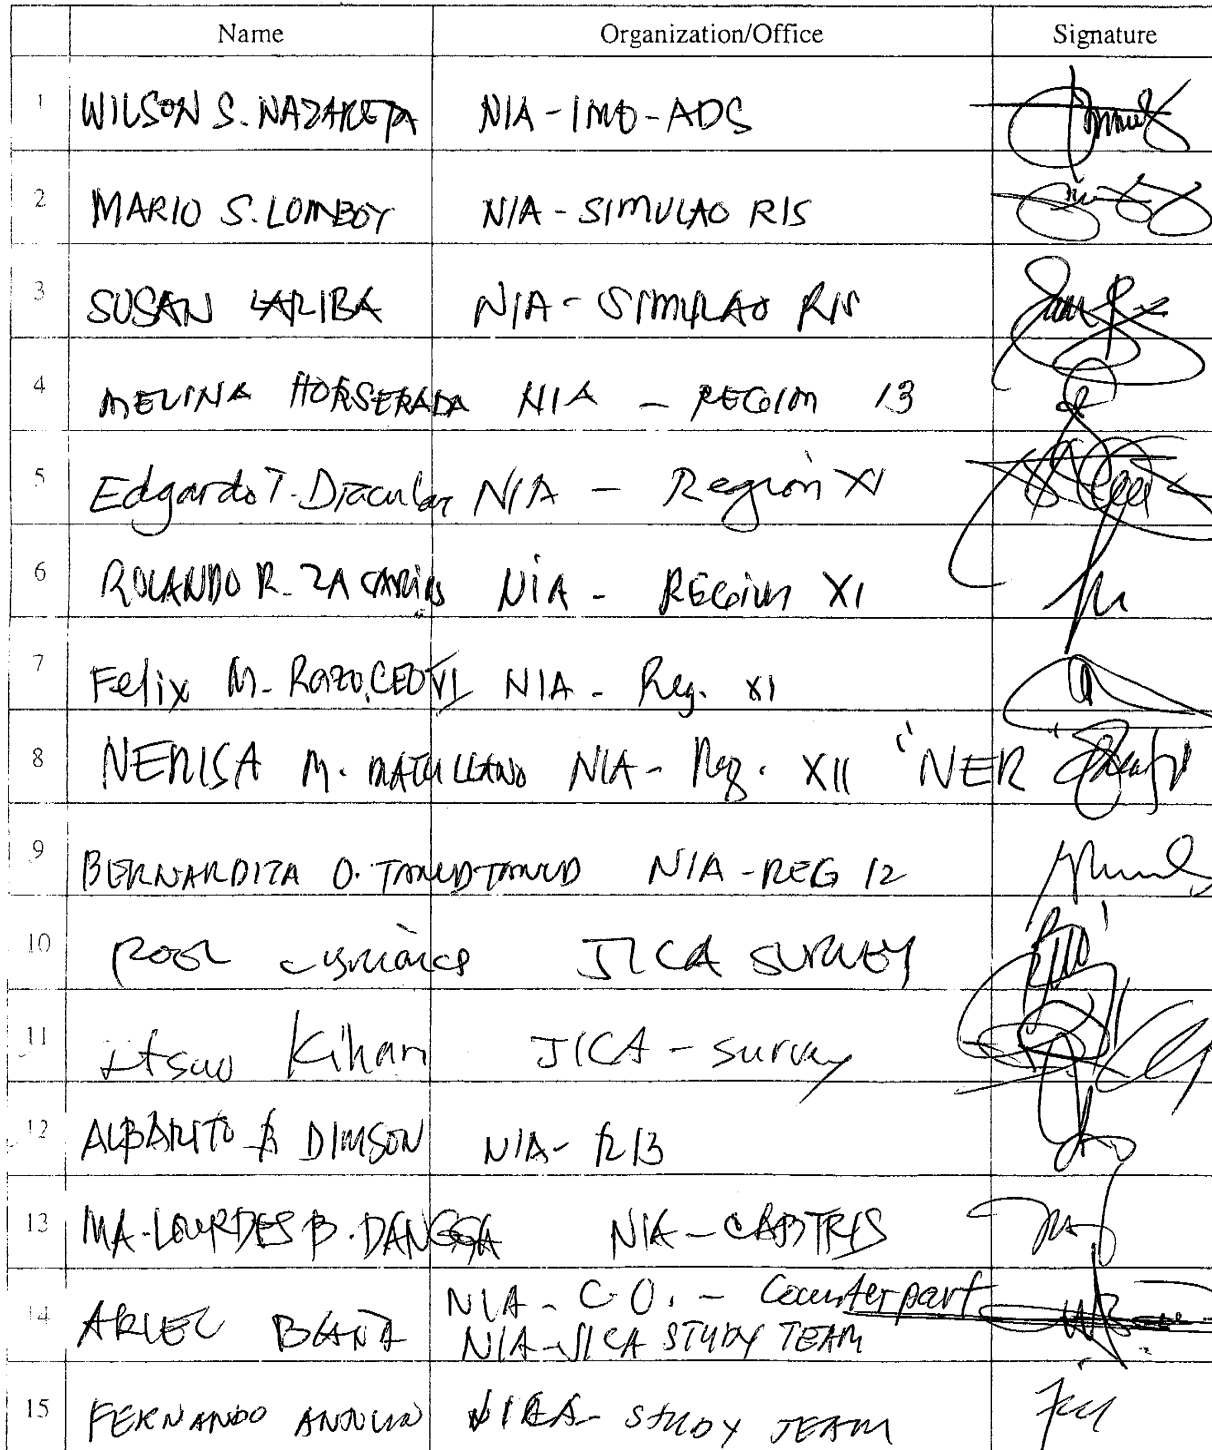 Name Organization/Office Signature
1 WILSON S. NAZARETA NIA-IMO-ADS
2 MARIO S. LOMBOY NIA - SIMULAO RIS
3 SUSAN LARIBA NIA - SIMULAO RIS
4 MELINA HORSERADA NIA - REGION 13
5 Edgardo T. Diacular NIA - Region XI
6 ROLANDO R. ZACARIAS NIA - REGION XI
7 Felix M. Razo, CEO VI NIA - Reg. XI
8 NERISA M. MATULLANO NIA - Reg. XII "NER"
9 BERNARDITA O. TANUDTANUD NIA - REG 12
10 JICA SURVEY
11 Itsuo Kihara JICA - survey
12 ALBARITO DIMSON NIA - R13
13 MA. LOURDES B. DANGGA NIA - CABTRIS
14 ARIEL NIA - C.O. - Counterpart
NIA-JICA STUDY TEAM
15 FERNANDO STUDY TEAM